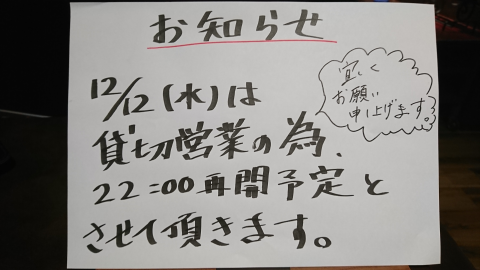 お知らせ
12/12(水)は
貸切営業の為、
22:00再開予定と
させて頂きます。
宜しく
お願い
申し上げます。